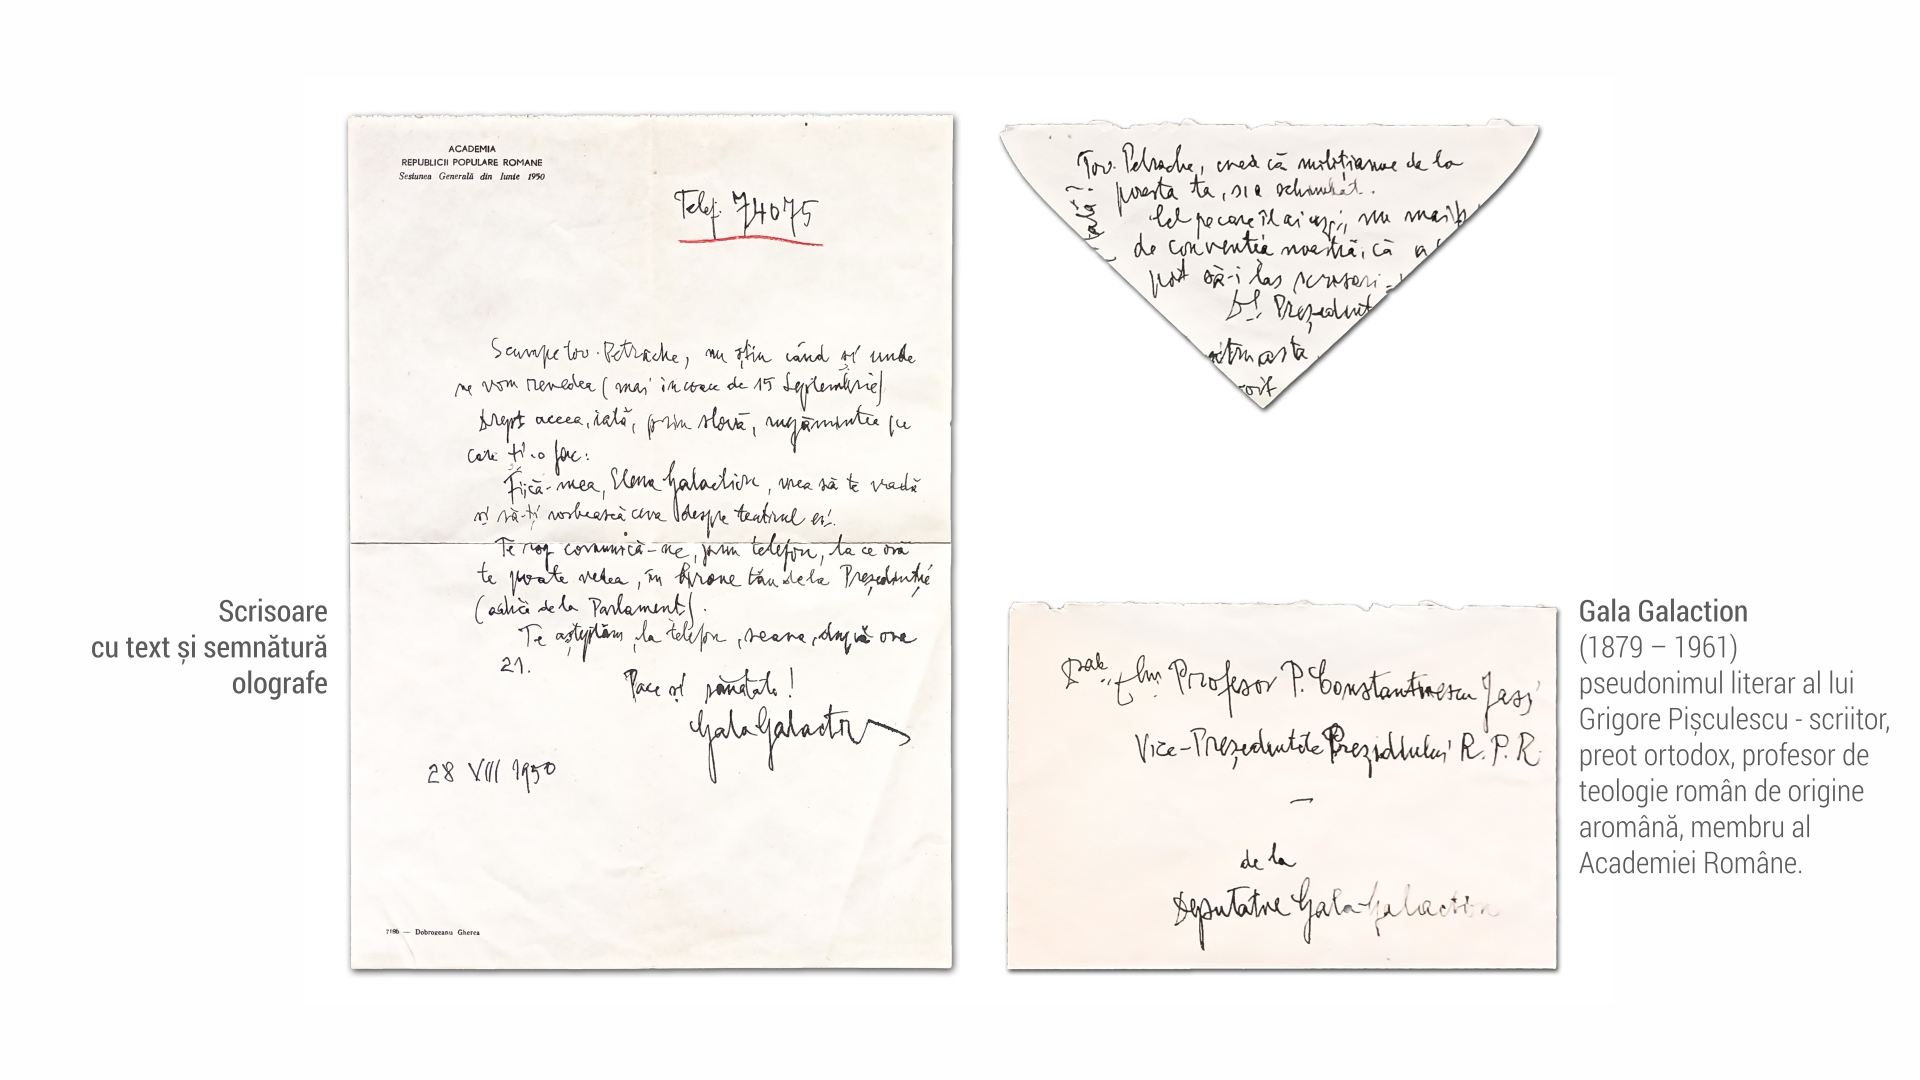 Scrisoare
cu text și semnătură
olografe
ACADEMIA
REPUBLICII POPULARE ROMANE
Sesiunea Generală din Iunie 1950
Telef. 74075
Scumpe tov. Petrache, nu știu când și unde
ne vom revedea (mai încoace de 15 Septembrie)
Drept aceea, iată, prin slovă, rugămintea pe
care ți-o fac:
Fiică-mea, Elena Galaction, vrea să te vadă
și să-ți vorbească ceva despre teatrul ei.
Te rog comunică-ne, prin telefon, la ce oră
te poate vedea, în biroul tău de la Preșidenție
(adică de la Parlament).
Te așteptăm, la telefon, seara, după ora
21.
Pace și sănătate!
Gala Galaction
28 VIII 1950
7186 — Dobrogeanu Gherea
Tov. Petrache, cred că milițianul de la
poarta ta, s'a schimbat.
Cel pe care îl ai azi, nu mai
de convenția noastră, că
pot să-i las scrisori
D. Președinte
asta
Profesor P. Constantinescu Iași
Vice-Președintele Prezidiului R.P.R.
—
de la
Deputatul Gala Galaction
Gala Galaction
(1879 – 1961)
pseudonimul literar al lui
Grigore Pișculescu - scriitor,
preot ortodox, profesor de
teologie român de origine
aromână, membru al
Academiei Române.